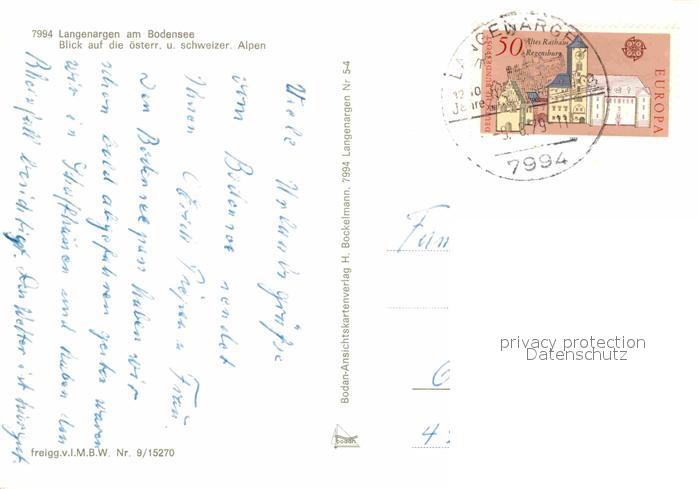 7994 Langenargen am Bodensee
Blick auf die österr. u. schweizer. Alpen
Viele Urlaubsgrüße
vom Bodensee sendet
Ihnen Erich u Frau.
Den Bodensee haben wir
schon bald abgefahren gestern waren
wir in Schaffhausen und haben den
Rheinfall besichtigt. Das Wetter ist
freigg.v.I.M.B.W. Nr. 9/15270
Bodan-Ansichtskartenverlag H. Bockelmann, 7994 Langenargen Nr 5-4
bodan
LANGENARGEN
Jahre
7994
DEUTSCHE BUNDESPOST
50
Altes Rathaus
Regensburg
EUROPA
privacy protection
Datenschutz